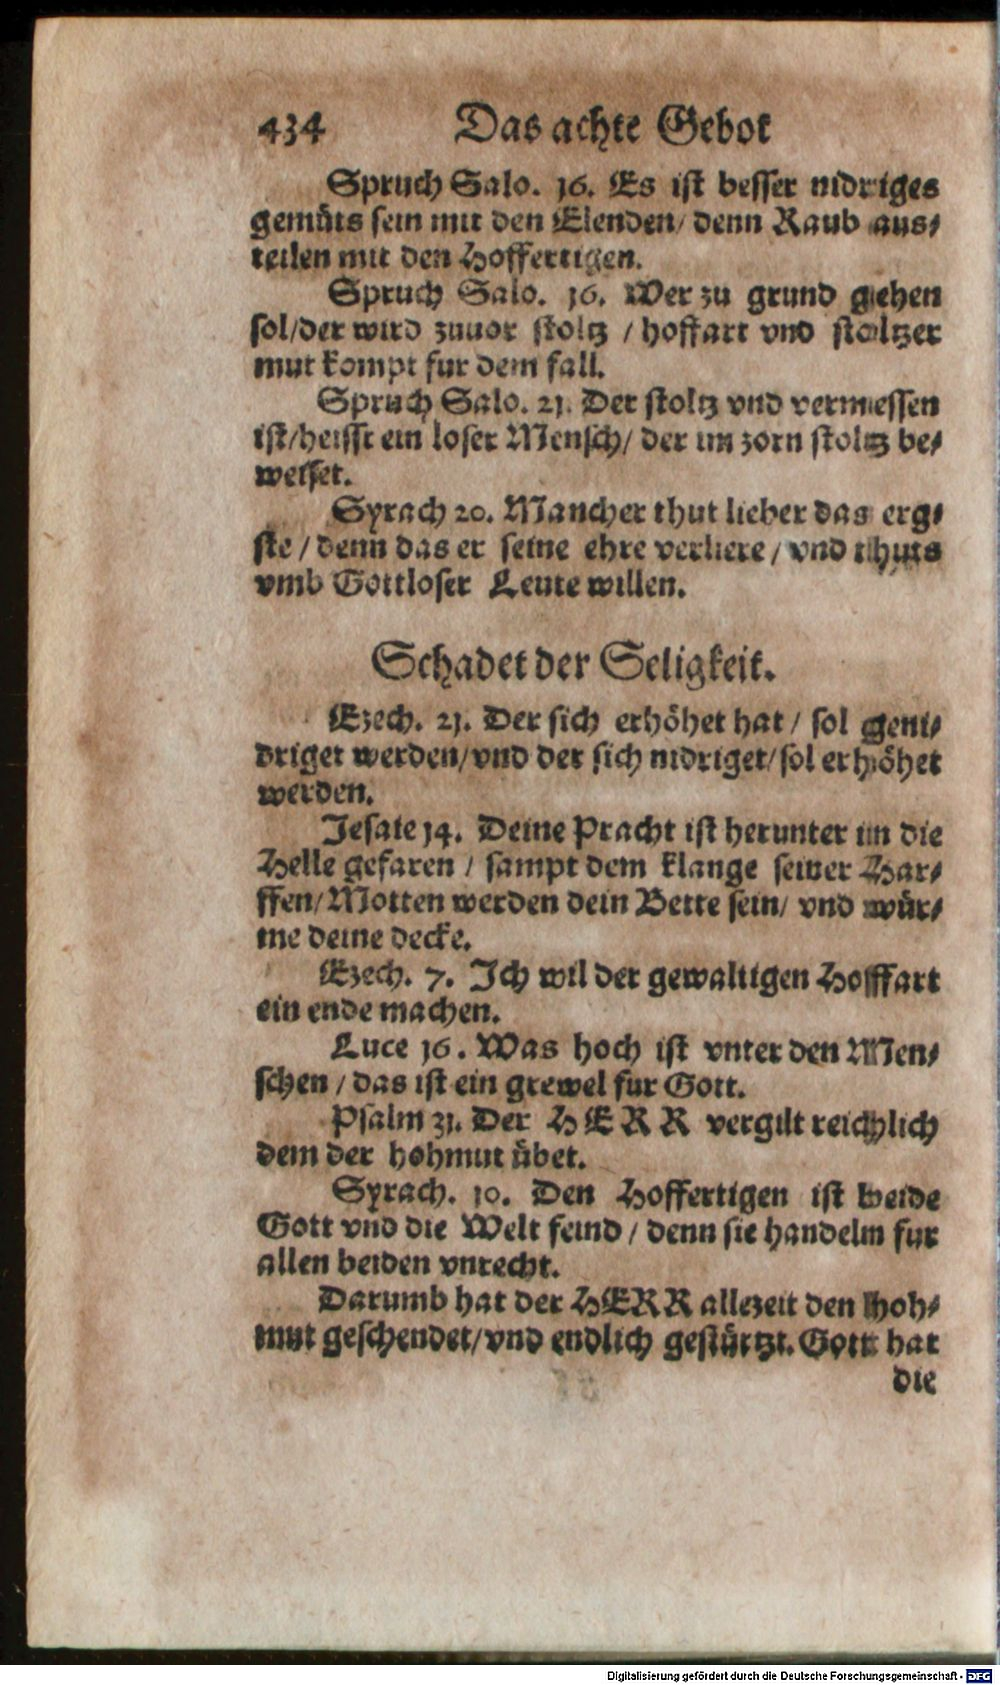 434 Das achte Gebot
Spruch Salo. 16. Es ist besser nidriges
gemüts sein mit den Elenden/ denn Raub aus⸗
teilen mit den Hoffertigen.
Spruch Salo. 16. Wer zu grund gehen
sol/der wird zuuor stoltz / hoffart vnd stoltzer
mut kompt fur dem fall.
Spruch Salo. 21. Der stoltz vnd vermessen
ist/heisst ein loser Mensch/ der im zorn stoltz be⸗
weiset.
Syrach 20. Mancher thut lieber das erg⸗
ste / denn das er seine ehre verliere / vnd thuts
vmb Gottloser Leute willen.
Schadet der Seligkeit.
Ezech. 21. Der sich erhöhet hat / sol geni⸗
driget werden/vnd der sich nidriget/sol erhöhet
werden.
Jesaie 14. Deine Pracht ist herunter in die
Helle gefaren / sampt dem klange seiner Har⸗
ffen/Motten werden dein Bette sein/ vnd wür⸗
me deine decke.
Ezech. 7. Ich wil der gewaltigen Hofffart
ein ende machen.
Luce 16. Was hoch ist vnter den Men⸗
schen / das ist ein grewel fur Gott.
Psalm 31. Der HERR vergilt reichlich
dem der hohmut übet.
Syrach. 10. Den Hoffertigen ist beide
Gott vnd die Welt feind / denn sie handeln fur
allen beiden vnrecht.
Darumb hat der HERR allezeit den hoh⸗
mut geschendet/vnd endlich gestürtzt. Gott hat
die
Digitalisierung gefördert durch die Deutsche Forschungsgemeinschaft - DFG